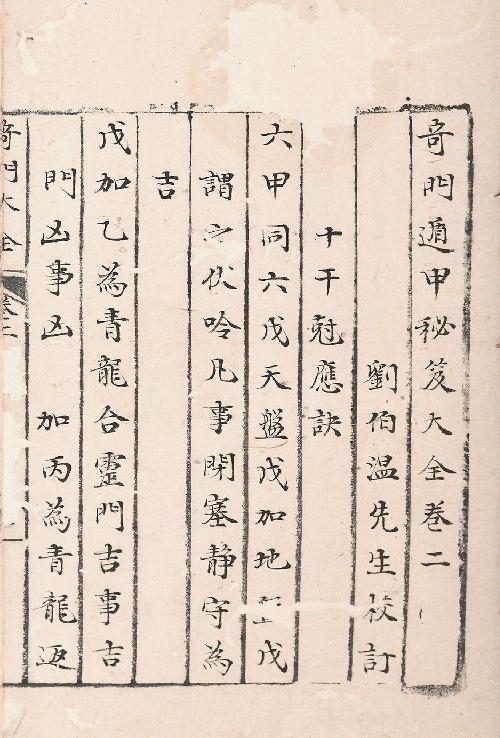 奇門遁甲秘笈大全卷二
劉伯溫先生校訂
十干尅應訣
六甲同六戊天盤戊加地戊
謂之伏吟凡事閉塞静守為
吉
戊加乙為青龍合靈門吉事吉
門凶事凶 加丙為青龍返
奇門大全 卷二